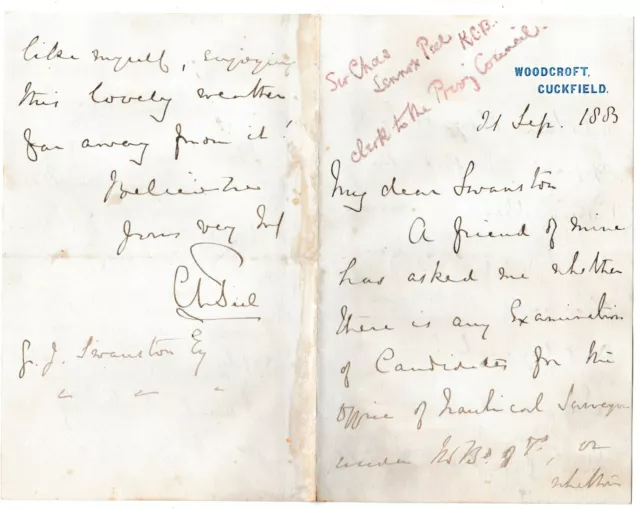 Sir Chas
Lennox Peel K.C.B.
clerk to the Privy Council.
WOODCROFT,
CUCKFIELD.
21 Sep. 1883
My dear Swanston
A friend of mine
has asked me whether
there is any Examination
of Candidates for the
Office of Nautical Surveyor
under the Bd of Td, or
whether
like myself, enjoying
this lovely weather
far away from it!
Believe me
yours very try
CLPeel
G. J. Swanston Esq
" " "